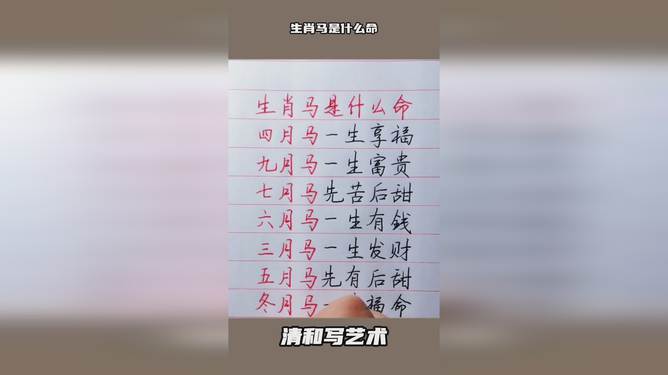 生肖马是什么命
生肖马是什么命
四月马一生享福
九月马一生富贵
七月马先苦后甜
六月马一生有钱
三月马一生发财
五月马先有后甜
冬月马一 福命
清和写艺术